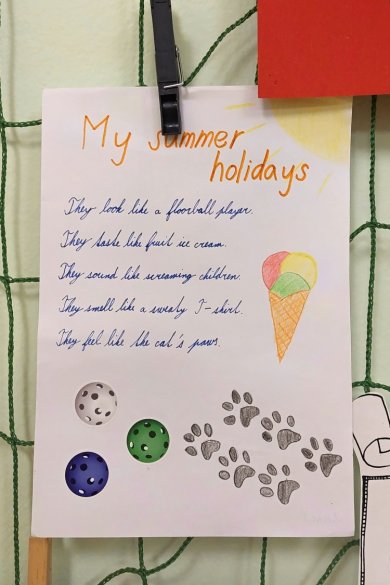 My summer
holidays
They look like a floorball player.
They taste like fruit ice cream.
They sound like screaming children.
They smell like a sweaty T-shirt.
They feel like the cat's paws.